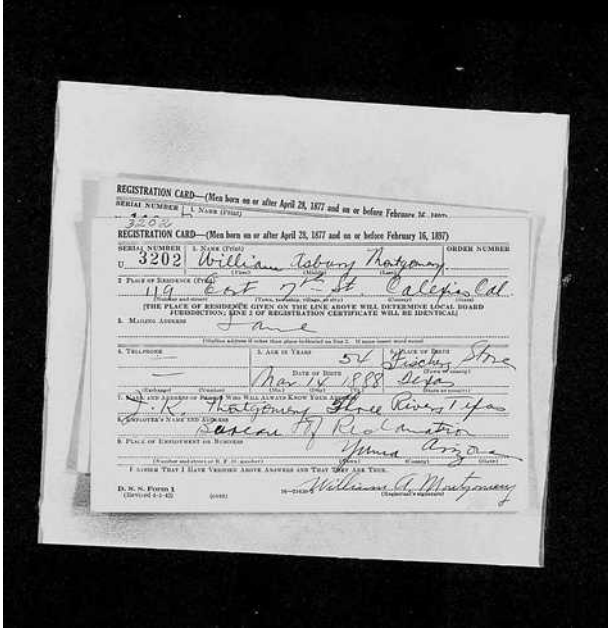 REGISTRATION CARD—(Men born on or after April 28, 1877 and on or before February 16, 1897)
SERIAL NUMBER 1. NAME (Print)
3202
REGISTRATION CARD—(Men born on or after April 28, 1877 and on or before February 16, 1897)
SERIAL NUMBER 1. NAME (Print) ORDER NUMBER
U 3202 William Asbury Montgomery
(First) (Middle) (Last)
2. PLACE OF RESIDENCE (Print)
119 East 7th St. Calexico Cal
(Number and street) (Town, township, village, or city) (County) (State)
[THE PLACE OF RESIDENCE GIVEN ON THE LINE ABOVE WILL DETERMINE LOCAL BOARD
JURISDICTION; LINE 2 OF REGISTRATION CERTIFICATE WILL BE IDENTICAL]
3. MAILING ADDRESS
Same
[Mailing address if other than place indicated on line 2. If same insert word same]
4. TELEPHONE 5. AGE IN YEARS 6. PLACE OF BIRTH
— 54 Fischer Store
DATE OF BIRTH (Town or county)
— Mar 14 1888 Texas
(Exchange) (Number) (Mo.) (Day) (Yr.) (State or country)
7. NAME AND ADDRESS OF PERSON WHO WILL ALWAYS KNOW YOUR ADDRESS
J. K. Montgomery Three Rivers Texas
8. EMPLOYER'S NAME AND ADDRESS
Bureau of Reclamation
9. PLACE OF EMPLOYMENT OR BUSINESS
Yuma Arizona
(Number and street or R. F. D. number) (Town) (County) (State)
I AFFIRM THAT I HAVE VERIFIED ABOVE ANSWERS AND THAT THEY ARE TRUE.
D. S. S. Form 1
(Revised 4-1-42) (over) William A. Montgomery
(Registrant's signature)